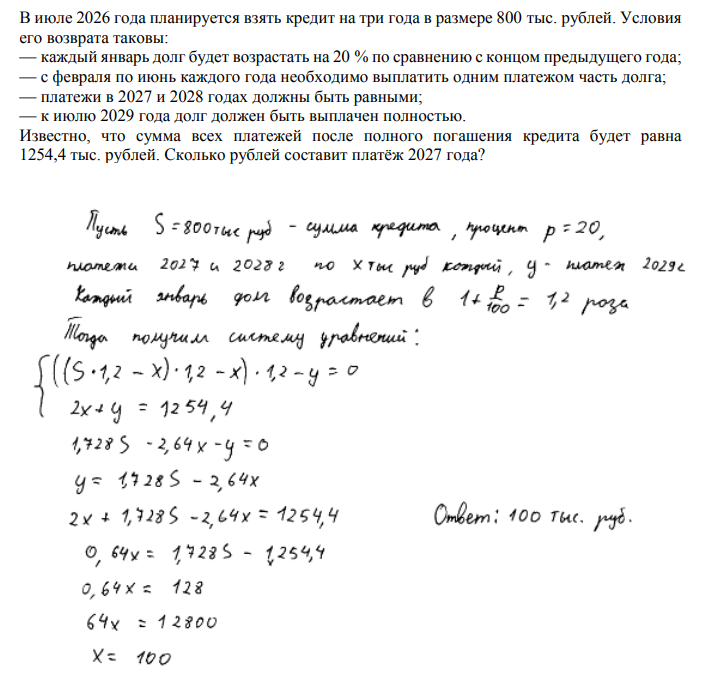 В июле 2026 года планируется взять кредит на три года в размере 800 тыс. рублей. Условия
его возврата таковы:
— каждый январь долг будет возрастать на 20 % по сравнению с концом предыдущего года;
— с февраля по июнь каждого года необходимо выплатить одним платежом часть долга;
— платежи в 2027 и 2028 годах должны быть равными;
— к июлю 2029 года долг должен быть выплачен полностью.
Известно, что сумма всех платежей после полного погашения кредита будет равна
1254,4 тыс. рублей. Сколько рублей составит платёж 2027 года?
Пусть S = 800 тыс руб - сумма кредита, процент p = 20,
платежи 2027 и 2028 г по x тыс руб каждый, y - платеж 2029 г
Каждый январь долг возрастает в 1+ p/100 = 1,2 раза
Тогда получим систему уравнений:
{ ((S·1,2 - x)·1,2 - x)·1,2 - y = 0
2x + y = 1254,4
1,728S - 2,64x - y = 0
y = 1,728S - 2,64x
2x + 1,728S - 2,64x = 1254,4
Ответ: 100 тыс. руб.
0,64x = 1,728S - 1,254,4
0,64x = 128
64x = 12800
x = 100